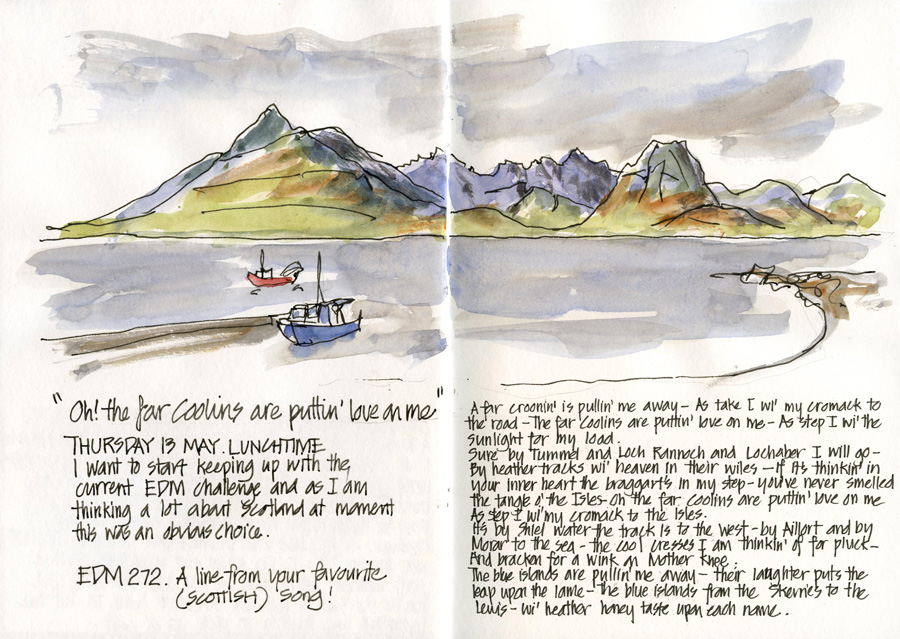 "Oh! the far Coolins are puttin' love on me"
THURSDAY 13 MAY. LUNCHTIME
I want to start keeping up with the
current EDM challenge and as I am
thinking a lot about Scotland at moment
this was an obvious choice.
EDM 272. A line from your favourite
(SCOTTISH) song!
A far croonin' is pullin' me away - As take I wi' my cromack to
the road - The far Coolins are puttin' love on me - As step I wi' the
sunlight for my load.
Sure by Tummel and Loch Rannoch and Lochaber I will go -
By heather tracks wi' heaven in their wiles - If it's thinkin' in
your inner heart the braggarts in my step - you've never smelled
the tangle o' the Isles - Oh the far Coolins are puttin' love on me
As step I wi' my cromack to the Isles.
It's by Shiel water the track is to the west - by Aillort and by
Morar to the sea - the cool cresses I am thinkin' of for pluck -
And bracken for a wink on Mother knee.
The blue islands are pullin' me away - their laughter puts the
leap upon the lame - The blue islands from the Skerries to the
Lewis - wi' heather honey taste upon each name.